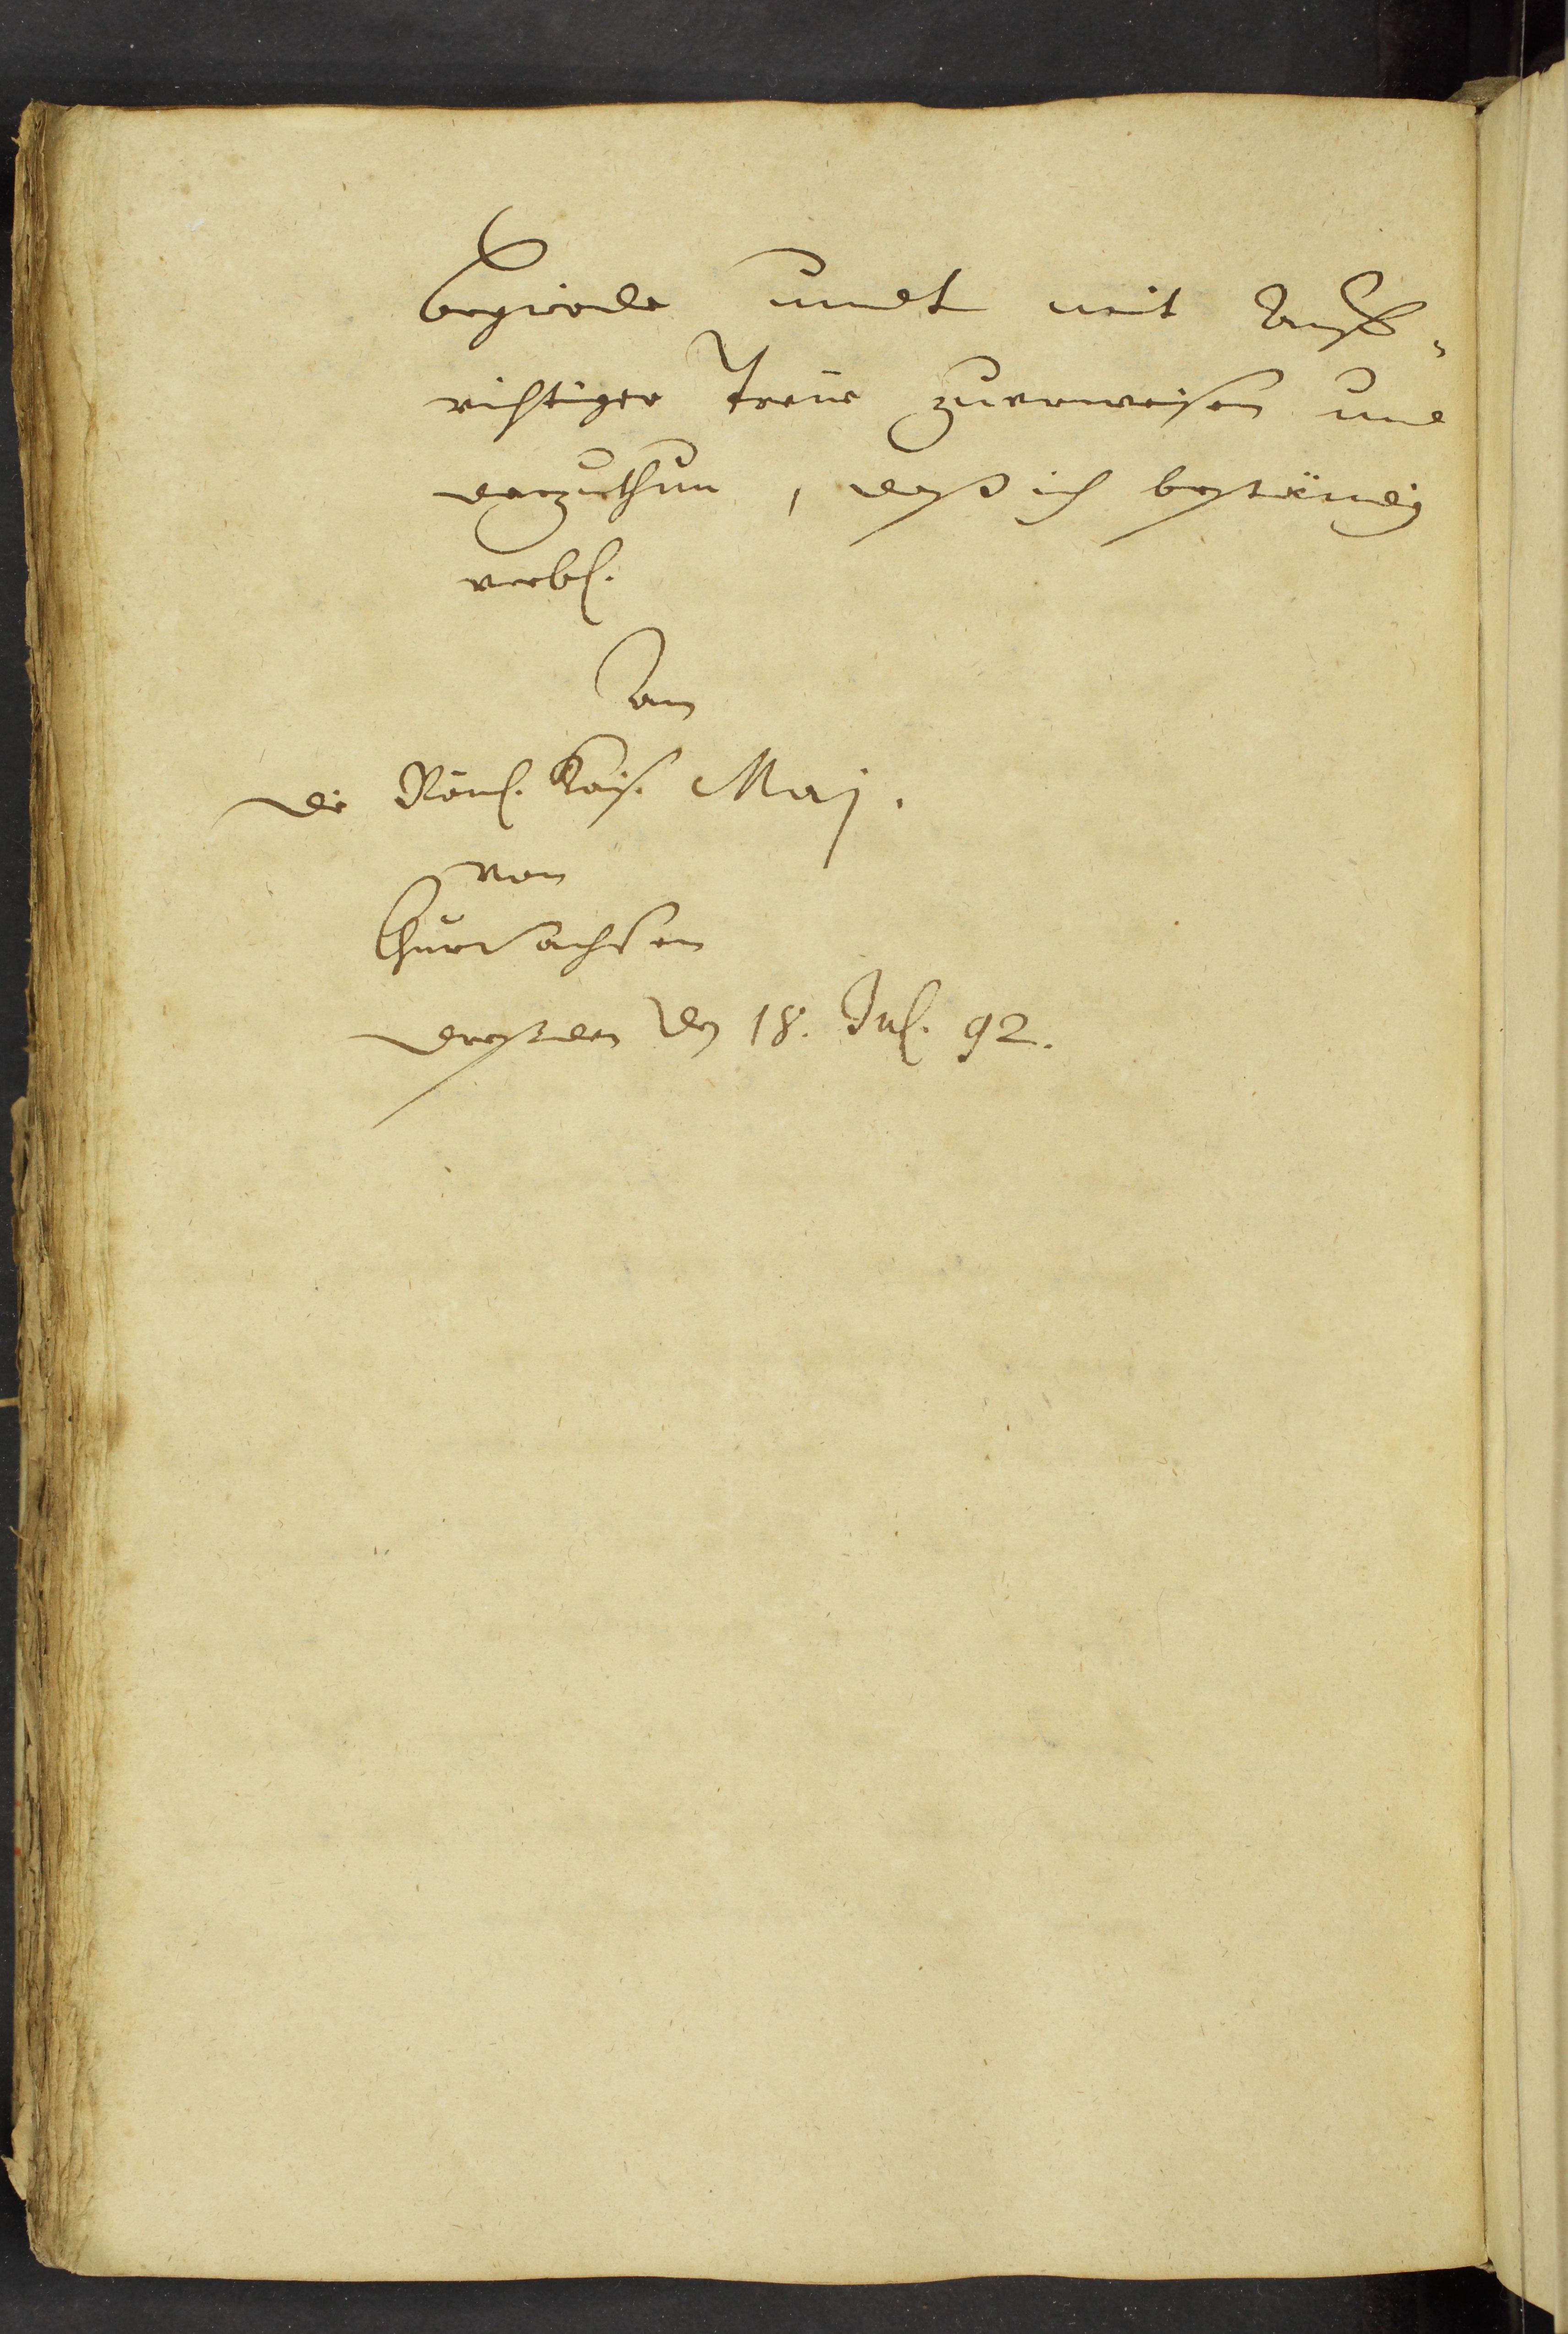 begierde undt mit Auff-
richtiger Treue zuerweisen und
darzuthun, daß ich beständig
verbl.
An
die Röm. Kais. Maj.
von
ChurSachsen
Dreßden den 18. Jul. 92.